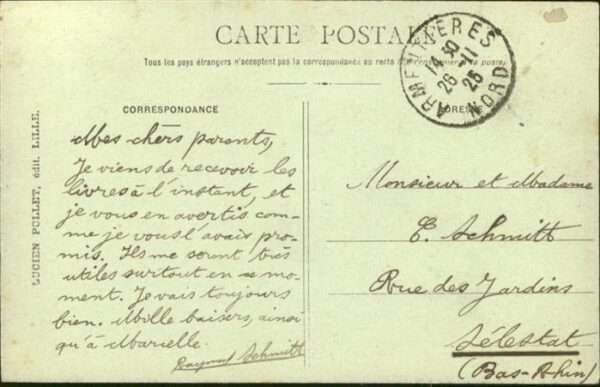 CARTE POSTALE
Tous les pays étrangers n'acceptent pas la correspondance au recto (se renseigner à la poste)
CORRESPONDANCE
ADRESSE
ARMENTIÈRES
14 30
26 -11
25
NORD
LUCIEN POLLET, édit. LILLE.
Mes chers parents,
Je viens de recevoir les
livres à l'instant, et
je vous en avertis com-
me je vous l'avais pro-
mis. Ils me seront très
utiles surtout en ce mo-
ment. Je vais toujours
bien. Mille baisers, ainsi
qu'à Marielle.
Raymond Schmitt
Monsieur et Madame
E. Schmitt
Rue des Jardins
Sélestat
(Bas-Rhin)